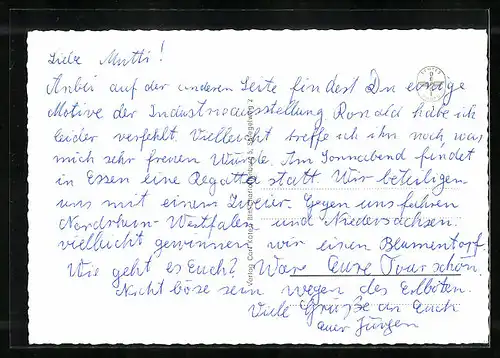 Liebe Mutti!
Anbei auf der anderen Seite findest Du einige
Motive der Industrieausstellung. Ronald habe ich
leider verfehlt. Vielleicht treffe ich ihn noch, was
mich sehr freuen würde. Am Sonnabend findet
in Essen eine Regatta statt. Wir beteiligen
uns mit einem Zweier. Gegen uns fahren
Nordrhein-Westfalen und Niedersachsen.
vielleicht gewinnen wir einen Blumentopf.
Wie geht es Euch? War Eure Tour schön.
Nicht böse sein wegen des Eilboten.
Viele Grüße an Euch
euer Jürgen